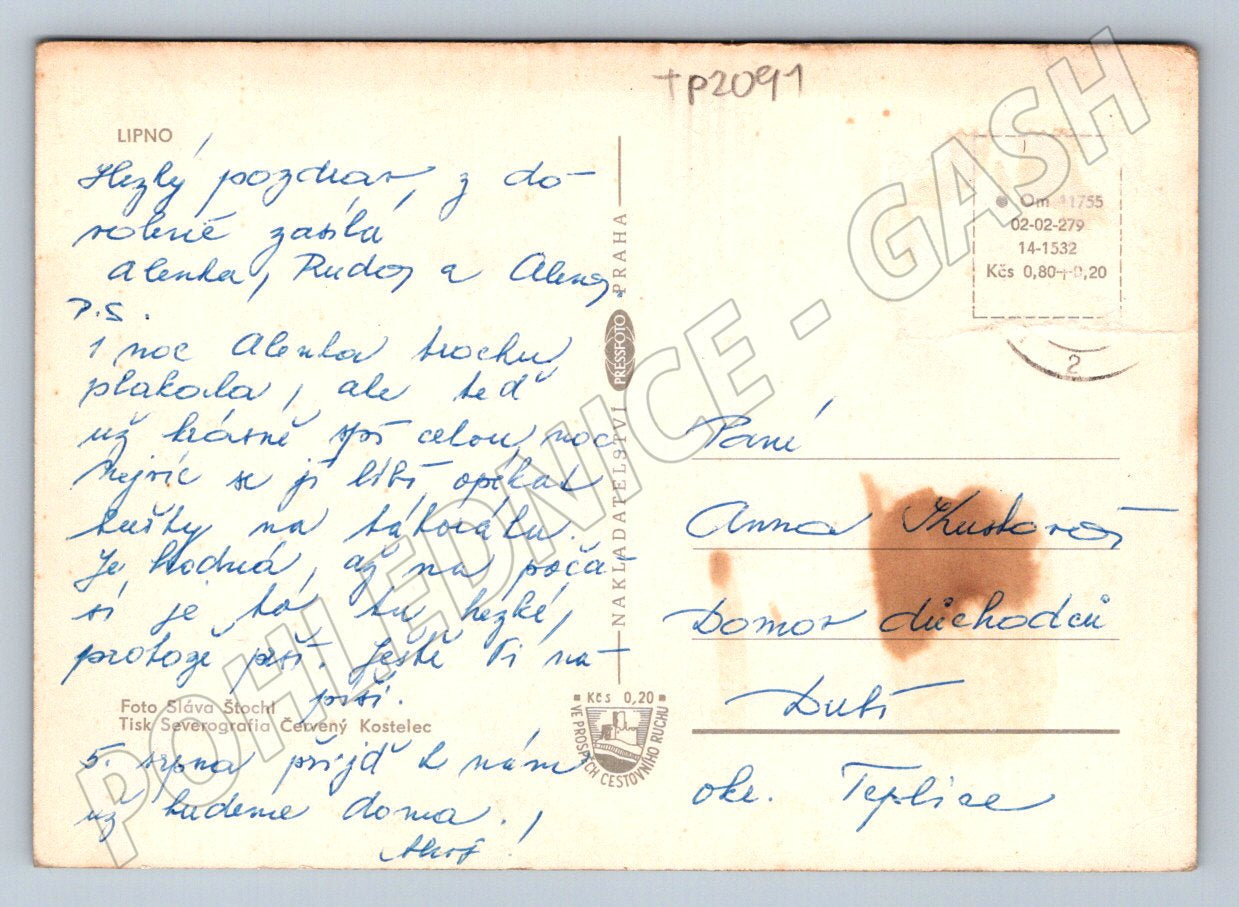 TP2091
LIPNO
Hezký pozdrav z do-
volené zasílá
Alenka, Ruda a Alena
P.S.
1 noc Alenka trochu
plakala, ale teď
už krásně spí celou noc
Nejvíc se jí líbí opékat
buřty na táboráku.
Je hodná, až na počá-
sí je to tu hezké,
protože prší. Ještě Ti na-
píši.
Foto Sláva Štochl
Tisk Severografia Červený Kostelec
5. srpna přijď k nám
už budeme doma.
Ahoj!
NAKLADATELSTVÍ PRESSFOTO PRAHA
Kčs 0,20
VE PROSPĚCH CESTOVNÍHO RUCHU
Om 41755
02-02-279
14-1532
Kčs 0,80+0,20
2
Paní
Anna
Domov důchodců
Dubí
okr. Teplice
POHLEDNICE - GASH